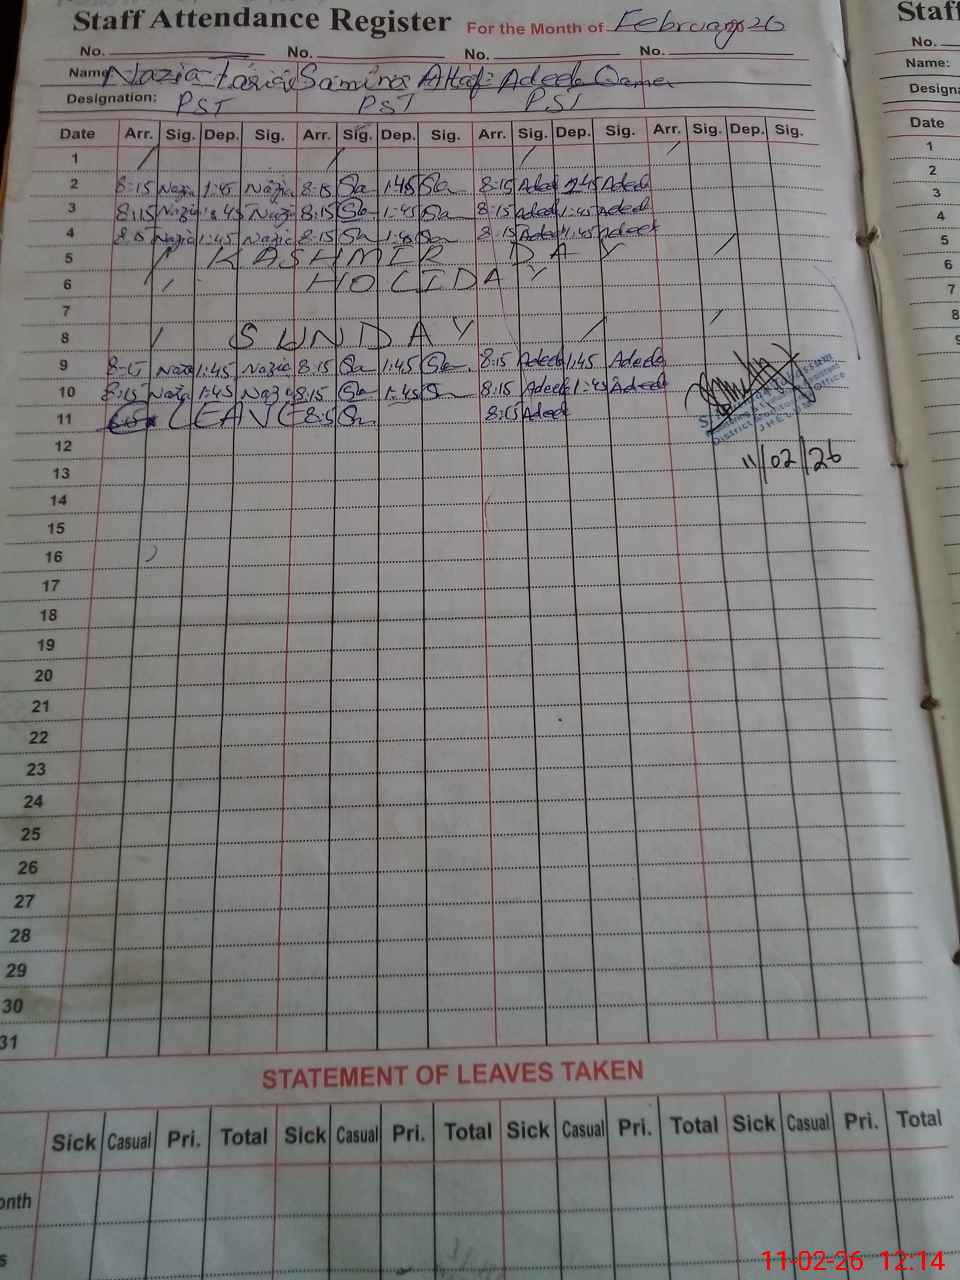 Staff Attendance Register For the Month of February 26
No. No. No. No.
Name: Nazia Tariq Samina Altaf Adeeb Qamer
Designation: PST PST PST
Date Arr. Sig. Dep. Sig. Arr. Sig. Dep. Sig. Arr. Sig. Dep. Sig. Arr. Sig. Dep. Sig.
1
2 8:15 Nazia 1:45 Nazia 8:15 Sa 1:45 Sa 8:15 Adeeb 1:45 Adeeb
3 8:15 Nazia 1:45 Nazia 8:15 Sa 1:45 Sa 8:15 Adeeb 1:45 Adeeb
4 8:15 Nazia 1:45 Nazia 8:15 Sa 1:45 Sa 8:15 Adeeb 1:45 Adeeb
5 KASHMIR DAY
6 HOLIDAY
7
8 SUNDAY
9 8:15 Nazia 1:45 Nazia 8:15 Sa 1:45 Sa 8:15 Adeeb 1:45 Adeeb
10 8:15 Nazia 1:45 Nazia 8:15 Sa 1:45 Sa 8:15 Adeeb 1:45 Adeeb
11 LEAVE 8:15 Sa 8:15 Adeeb
District Office
JHELUM
11/02/26
12
13
14
15
16
17
18
19
20
21
22
23
24
25
26
27
28
29
30
31
STATEMENT OF LEAVES TAKEN
Sick Casual Pri. Total Sick Casual Pri. Total Sick Casual Pri. Total Sick Casual Pri. Total
onth
s
Staff
No.
Name:
Designa
Date
1
2
3
4
5
6
7
8
9
11-02-26 12:14